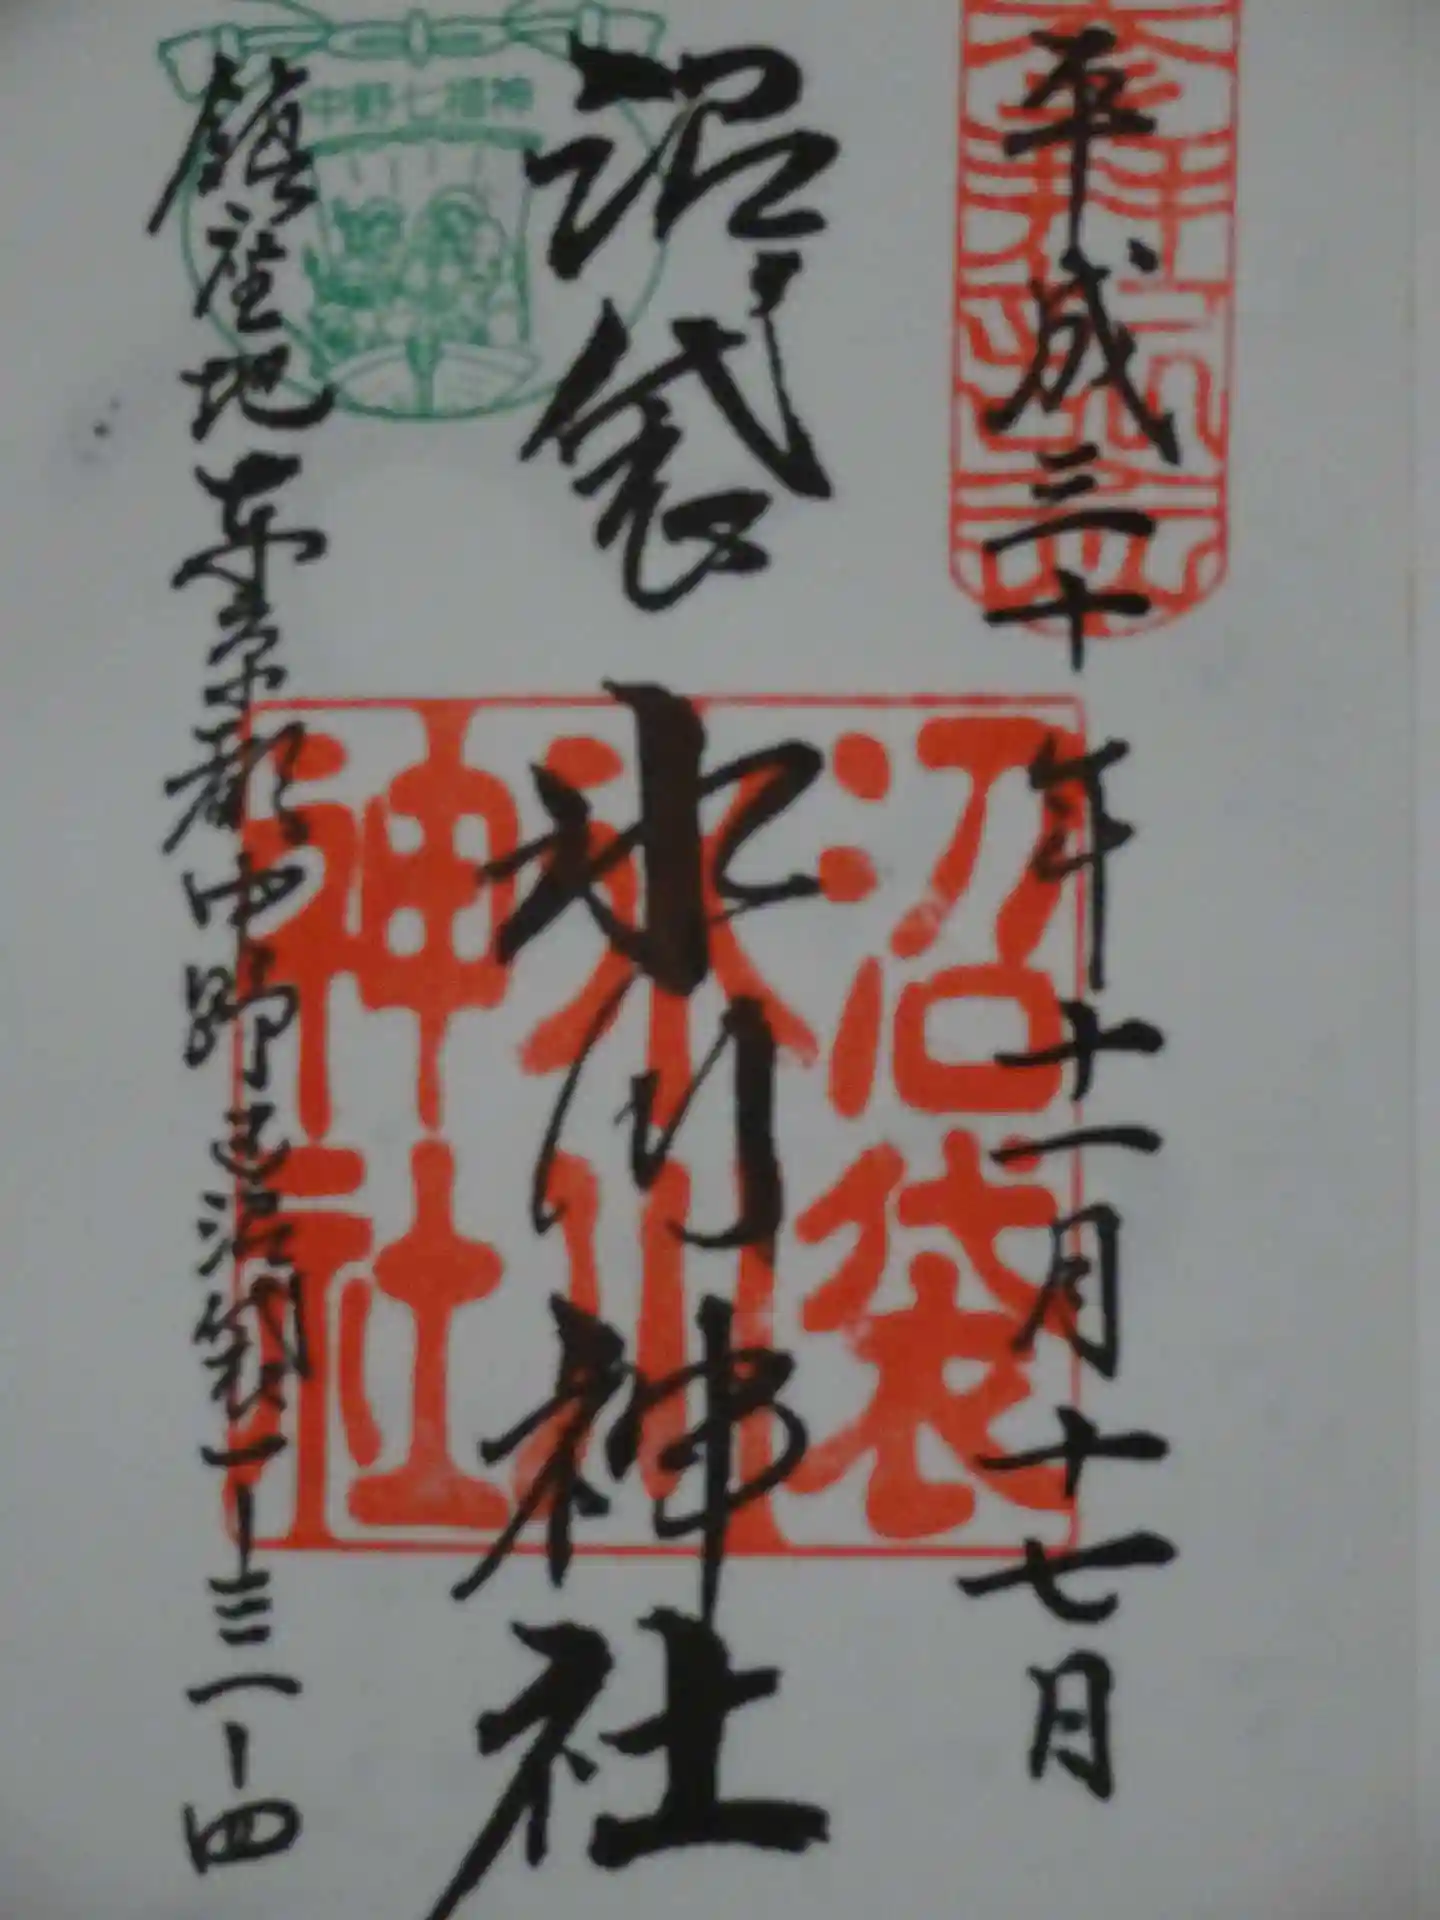 平成三十年十一月十七日
沼袋氷川神社
鎮座地東京都中野区沼袋一-三一-四
中野七福神
沼袋
氷川
神社